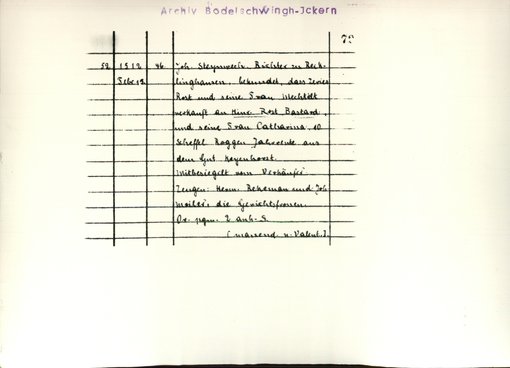 Archiv Bodelschwingh-Ickern
72
52 1512 46 Joh. Steynwech, Richter zu Reck-
Febr. 12 linghausen, bekundet, dass
Rost und seine Frau Mechtilt
verkauft an Rost Bastard,
und seine Frau Catharina, 10
Scheffel Roggen Jahrrente aus
dem Gut Heyenhorst.
Mitbesiegelt vom Verkäufer
Zeugen: Herm. Rekeman und Joh
die Gerichtsfronen.
Or. pgm. 2 anh. S.